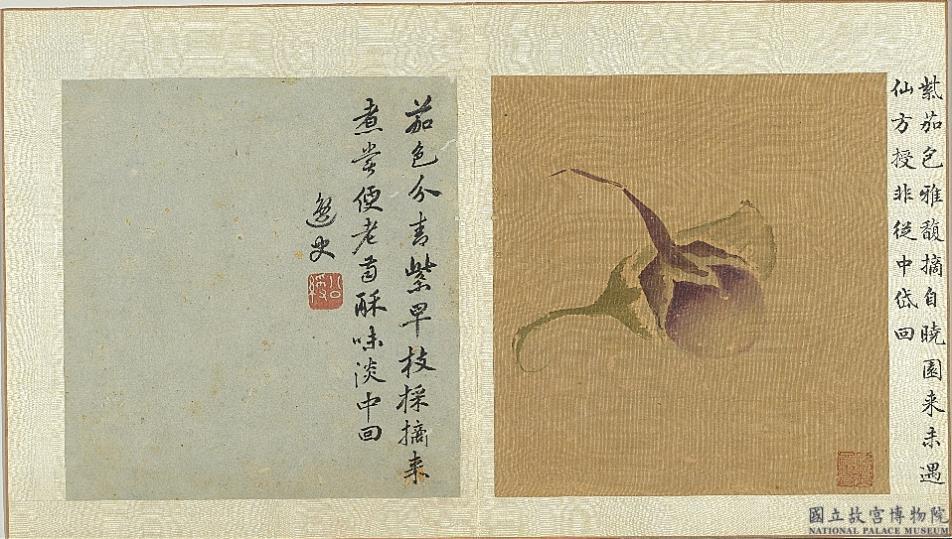 紫茄色雅馥摘自曉園来未遇
仙方授非從中岱回
茄色分青紫早枝採摘来
煮嘗便老齒酥味淡中回
逸史
公綬
國立故宮博物院
NATIONAL PALACE MUSEUM